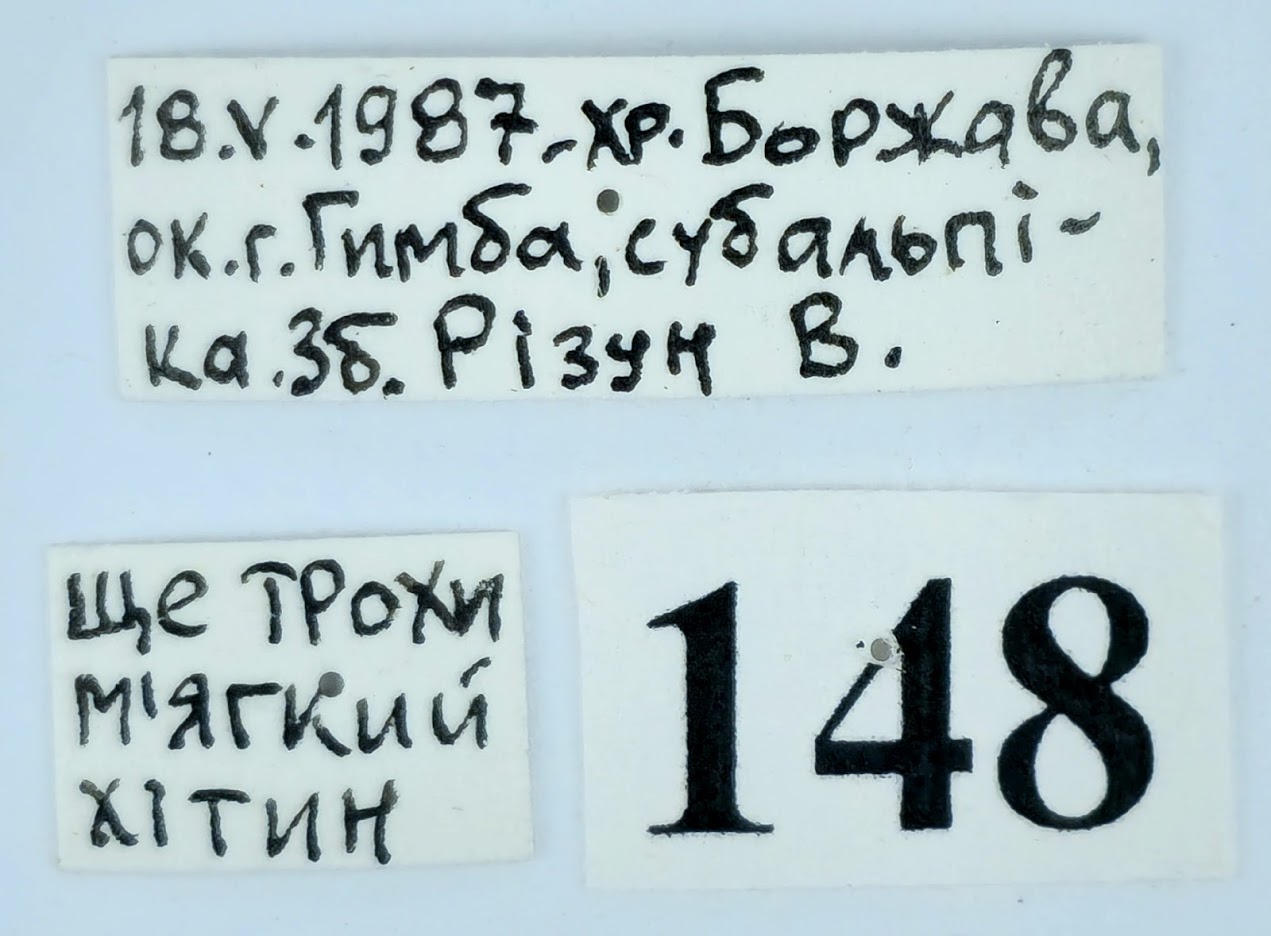 18.V.1987. хр. Боржава,
ок. г. Гимба, субальпі-
ка. Зб. Різун В.
ще трохи
м'ягкий
хітин
148